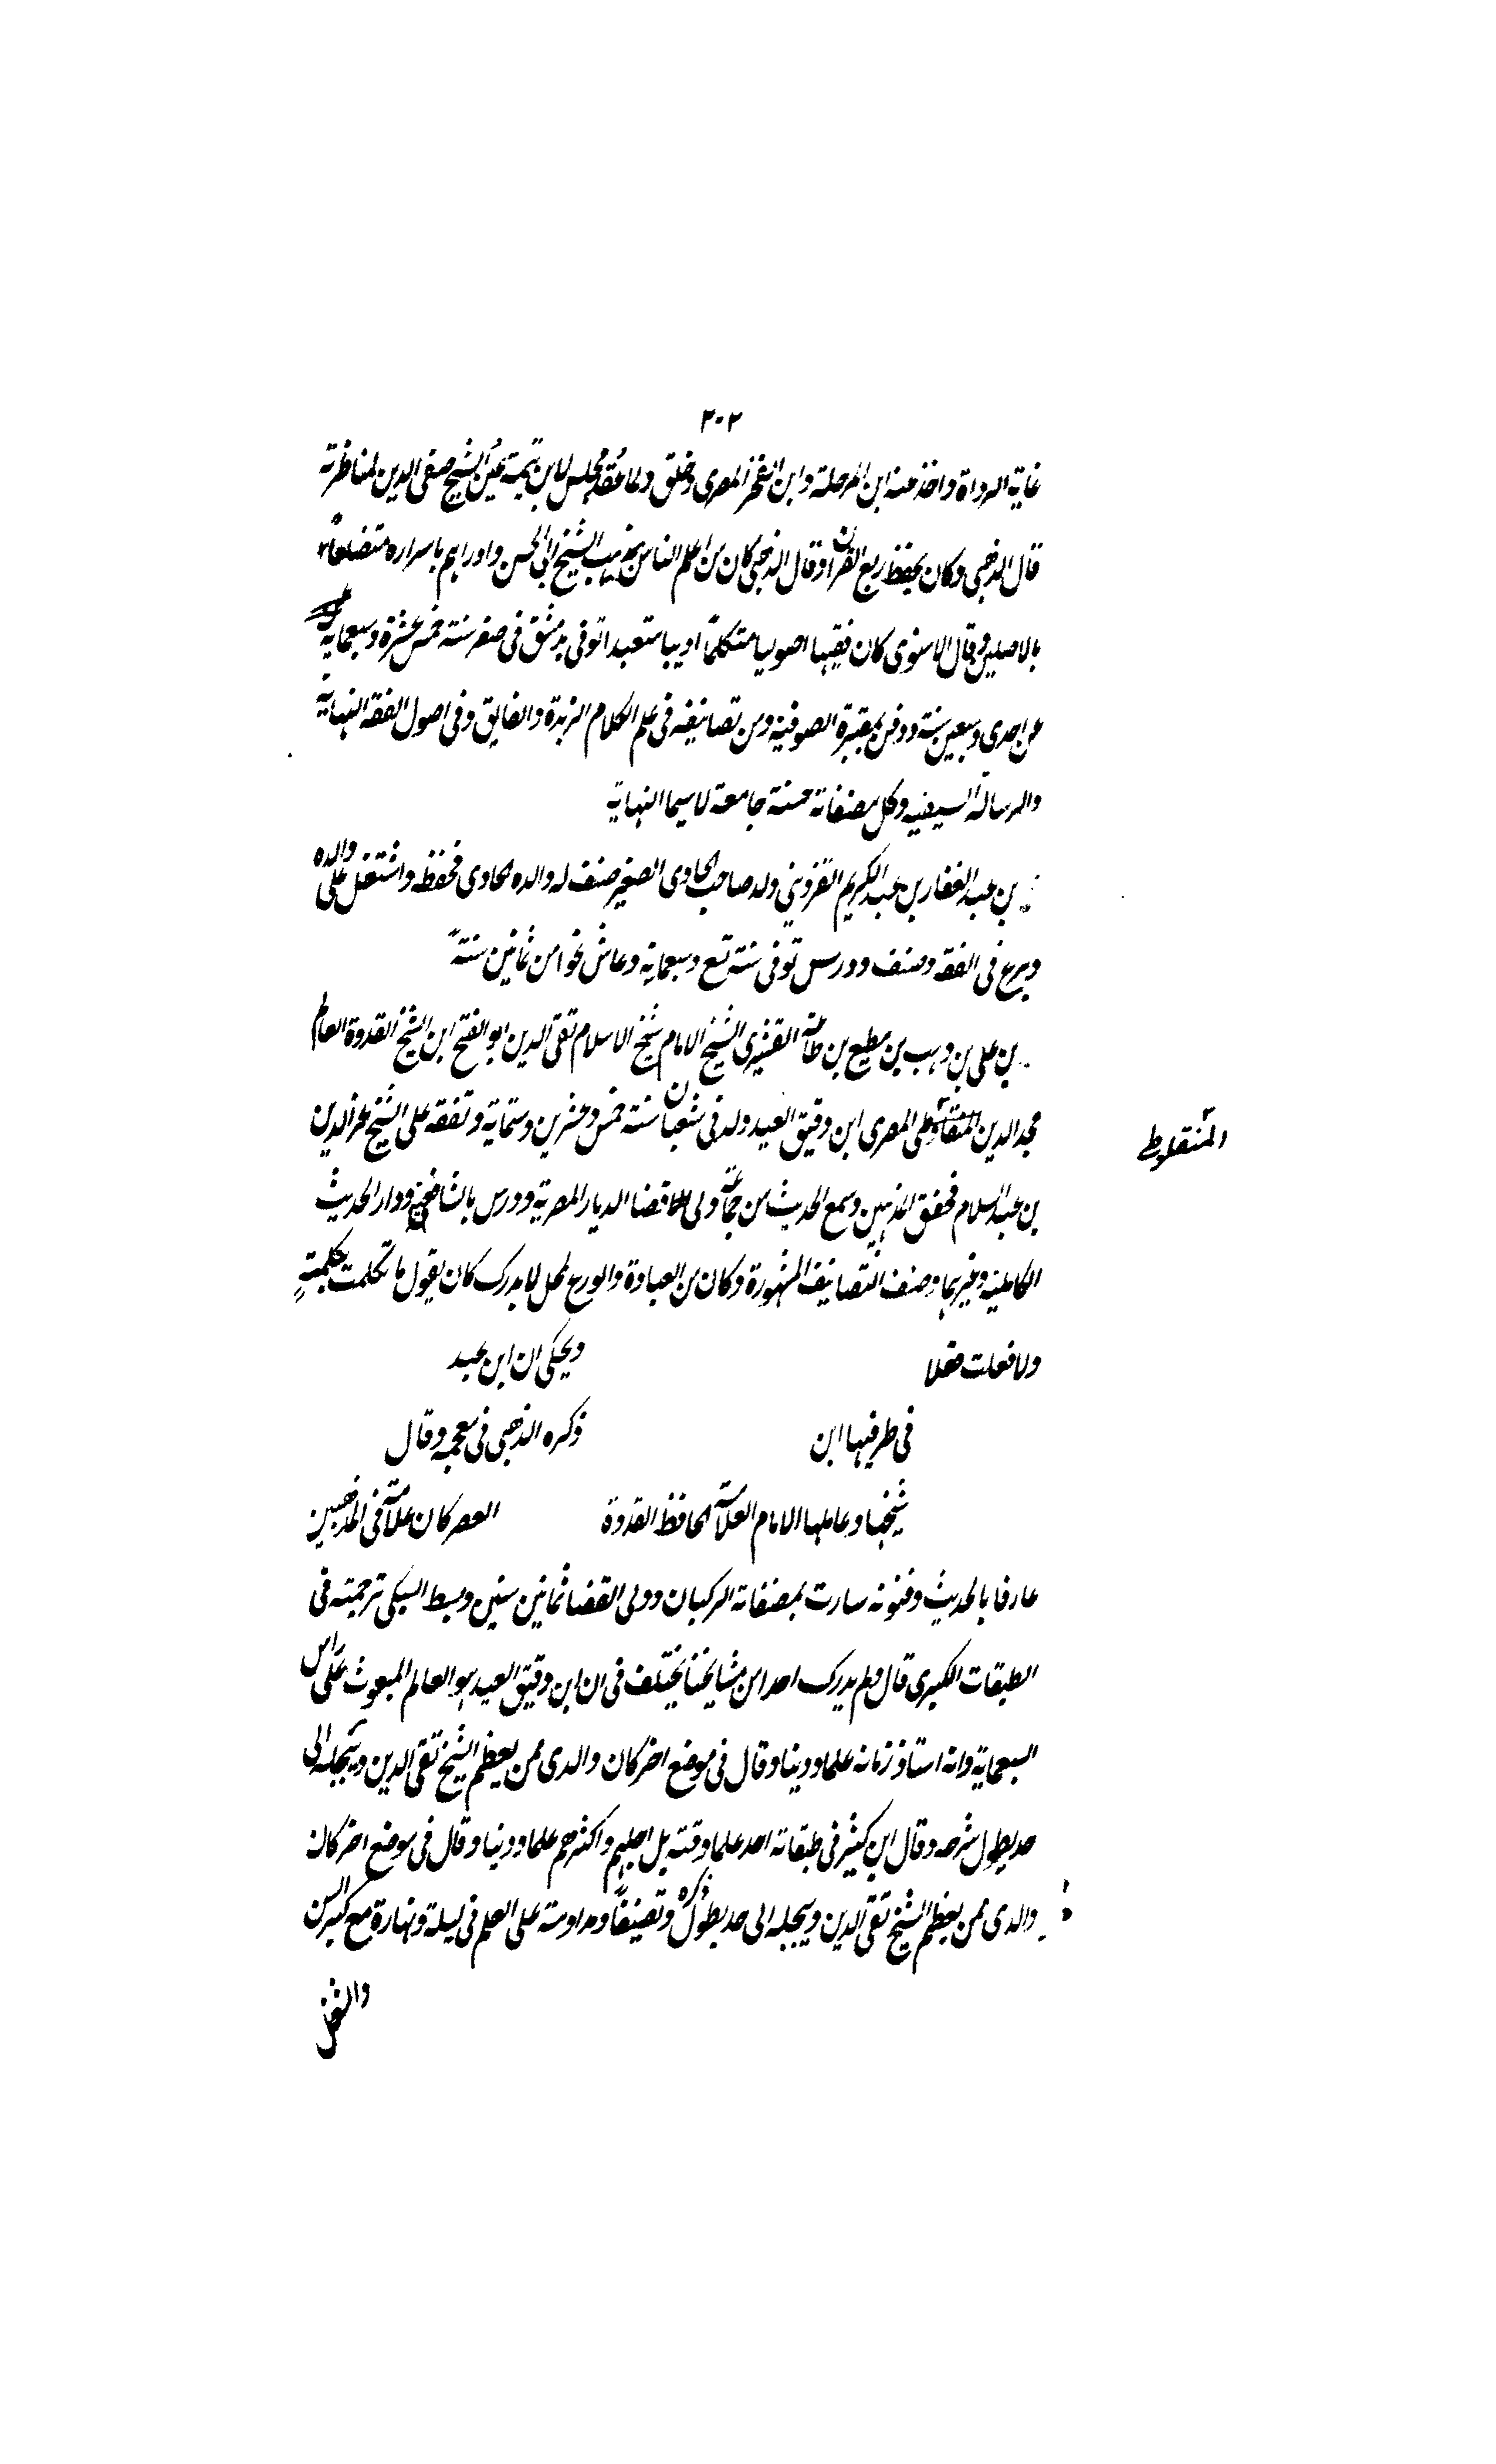 ٣٠٢
غاية الرداة واخذ عنه ابن المرحلة وابن الفخر المصرى وخلق ولما عقد مجلس لابن تيمية عين الشيخ صفى الدين لمناظرته
قال الذهبى وكان يحفظ ربع القران وقال الذهبى كان من اعلم الناس بمذهب الشيخ ابى الحسن وادراهم باسراره متضلعا
بالاصلين وقال الاسنوى كان فقيها اصوليا متكلما اديبا متعبدا توفى بدمشق فى صفر سنة خمس عشرة وسبعماية
عن احدى وسبعين سنة ودفن بمقبرة الصوفية ومن تصانيفه فى علم الكلام الزبدة والفايق وفى اصول الفقه النهاية
والرسالة السيفية وكل مصنفاته حسنة جامعة لاسيما النهاية
بن عبد الغفار بن عبد الكريم القزوينى ولد صاحب الحاوى الصغير صنف له والده الحاوى فحفظه واشتغل على والده
وبرع فى الفقه وصنف ودرس توفى سنة تسع وسبعماية وعاش نحوا من ثمانين سنة
بن على بن وهب بن مطيع بن طاعة القشيرى الشيخ الامام شيخ الاسلام تقى الدين ابو الفتح ابن الشيخ القدوة العالم
مجد الدين المنفلوطى المصرى ابن دقيق العيد ولد فى شعبان سنة خمس وعشرين وستماية وتفقه على الشيخ عز الدين
المنفلوط
بن عبد السلام فحقق المذهبين وسمع الحديث من جماعة ولى قضا الديار المصرية ودرس بالشافعى ودار الحديث
الكاملية وغيرهما وصنف التصانيف المشهورة وكان من العبادة والورع لمحل لا يدرك كان يقول ما تكلمت بكلمة
ولا فعلت فعلا ويحكى ان ابن عبد
فى طرفيها ابن ذكره الذهبى فى معجمه وقال
شيخها وعاملها الامام العلامة الحافظ القدوة العصر كان علامة فى المذهبين
عارفا بالحديث وفنونه سارت بمصنفاته الركبان وولى القضا ثمانين سنين وبسط السبكى ترجمته فى
الطبقات الكبرى قال ولم يدرك احدا من مشايخنا يختلف فى ان ابن دقيق العيد هو العالم المبعوث على راس
السبعماية وانه استاذ زمانه علما ودينا وقال فى موضع اخر كان والدى ممن يعظم الشيخ تقى الدين ويبجله الى
حد يطول شرحه وقال ابن كثير فى طبقاته احد علما وقته بل اجلهم واكثرهم علما ودينا وقال فى موضع اخر كان
والدى ممن يعظم الشيخ تقى الدين ويبجله الى حد يطول ذكره وتصنيفا ومداومة على العلم فى ليلة ونهارة مع كبر السن
والشغل